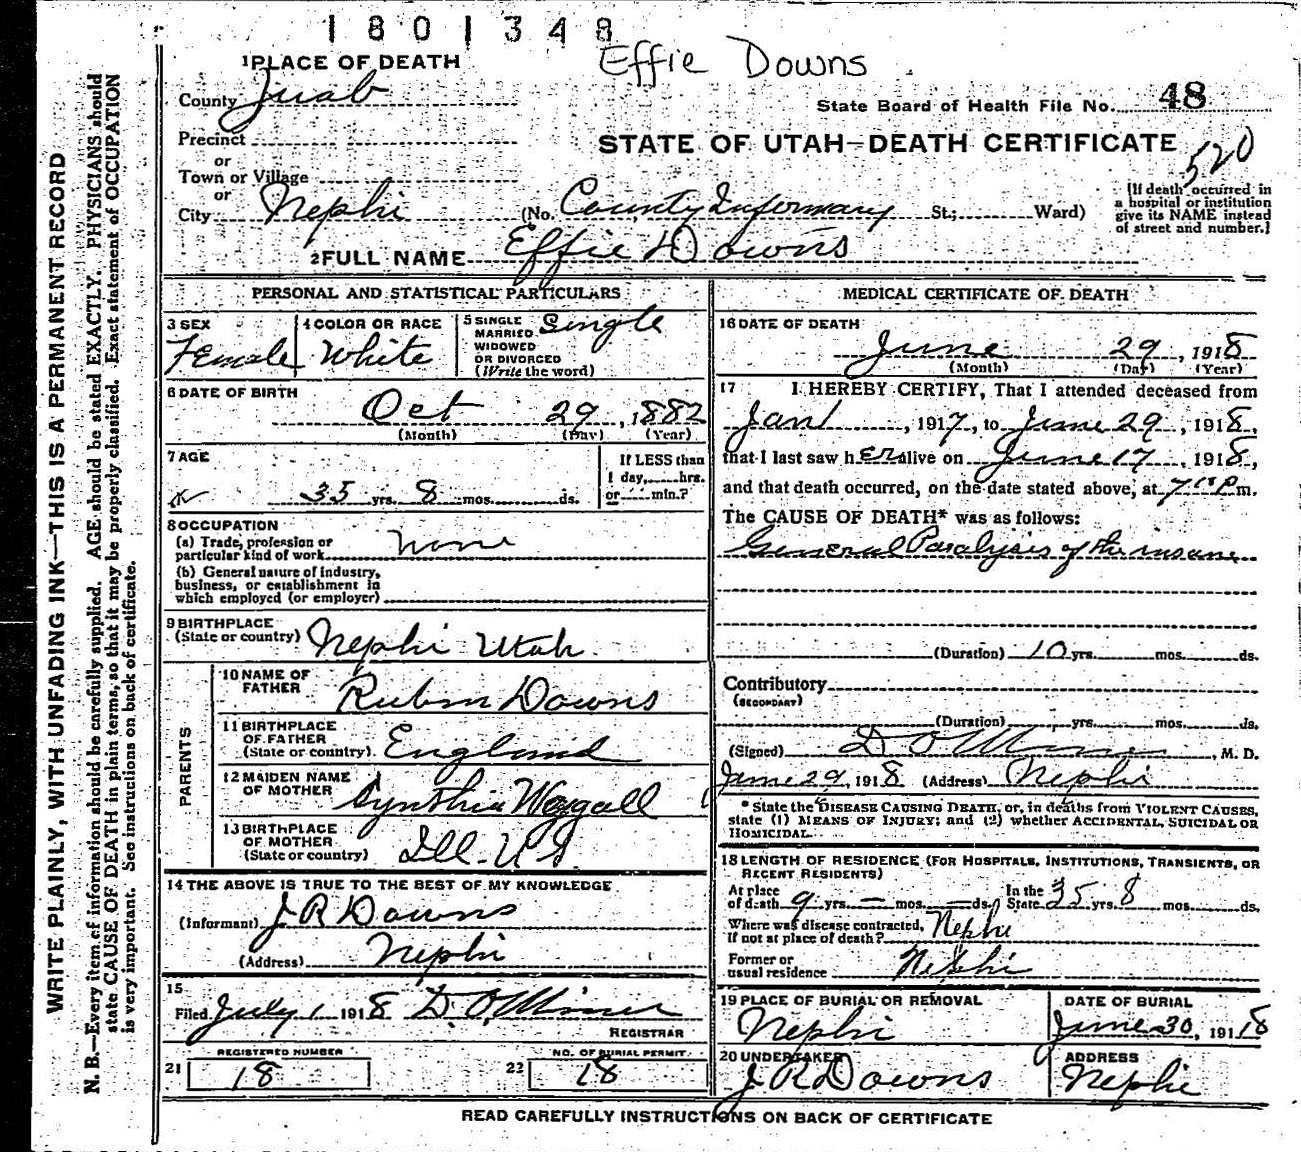 1801348
Effie Downs
1 PLACE OF DEATH
County Juab
State Board of Health File No. 48
Precinct
STATE OF UTAH—DEATH CERTIFICATE
520
or
Town or Village
or
City Nephi (No. County Infirmary St.; Ward)
[If death occurred in
a hospital or institution
give its NAME instead
of street and number.]
2 FULL NAME Effie Downs
PERSONAL AND STATISTICAL PARTICULARS
3 SEX
Female
4 COLOR OR RACE
White
5 SINGLE
MARRIED
WIDOWED
OR DIVORCED
(Write the word)
Single
6 DATE OF BIRTH
Oct 29, 1882
(Month) (Day) (Year)
7 AGE
35 yrs. 8 mos. ds.
If LESS than
1 day, hrs.
or min.?
8 OCCUPATION
(a) Trade, profession or
particular kind of work none
(b) General nature of industry,
business, or establishment in
which employed (or employer)
9 BIRTHPLACE
(State or country) Nephi Utah
PARENTS
10 NAME OF
FATHER Rubin Downs
11 BIRTHPLACE
OF FATHER
(State or country) England
12 MAIDEN NAME
OF MOTHER Cynthia
13 BIRTHPLACE
OF MOTHER
(State or country) Ill. U S
14 THE ABOVE IS TRUE TO THE BEST OF MY KNOWLEDGE
(Informant) J R Downs
(Address) Nephi
15
Filed July 1 1918 D. O. Miner
REGISTRAR
REGISTERED NUMBER
21 18
NO. OF BURIAL PERMIT
22 18
MEDICAL CERTIFICATE OF DEATH
16 DATE OF DEATH
June 29, 1918
(Month) (Day) (Year)
17 I HEREBY CERTIFY, That I attended deceased from
Jan 1, 1917, to June 29, 1918,
that I last saw her alive on June 17, 1918,
and that death occurred, on the date stated above, at 7 15 P m.
The CAUSE OF DEATH* was as follows:
General Paralysis of the insane
(Duration) 10 yrs. mos. ds.
Contributory
(SECONDARY)
(Duration) yrs. mos. ds.
(Signed) D O Miner, M. D.
June 29, 1918 (Address) Nephi
* State the DISEASE CAUSING DEATH, or, in deaths from VIOLENT CAUSES,
state (1) MEANS OF INJURY; and (2) whether ACCIDENTAL, SUICIDAL OR
HOMICIDAL.
18 LENGTH OF RESIDENCE (FOR HOSPITALS, INSTITUTIONS, TRANSIENTS, OR
RECENT RESIDENTS)
At place
of death 9 yrs. — mos. — ds.
In the
State 35 yrs. 8 mos. ds.
Where was disease contracted,
If not at place of death? Nephi
Former or
usual residence Nephi
19 PLACE OF BURIAL OR REMOVAL
Nephi
DATE OF BURIAL
June 30, 1918
20 UNDERTAKER
J R Downs
ADDRESS
Nephi
READ CAREFULLY INSTRUCTIONS ON BACK OF CERTIFICATE
WRITE PLAINLY, WITH UNFADING INK—THIS IS A PERMANENT RECORD
N. B.—Every item of information should be carefully supplied. AGE should be stated EXACTLY. PHYSICIANS should
state CAUSE OF DEATH in plain terms, so that it may be properly classified. Exact statement of OCCUPATION
is very important. See instructions on back of certificate.